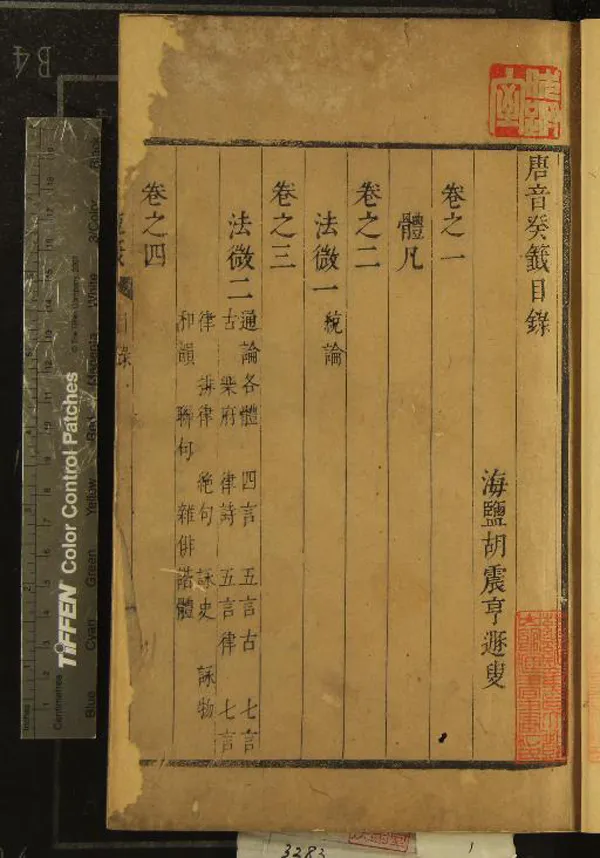 唐音癸籤目錄
海鹽胡震亨遯叟
卷之一
體凡
卷之二
法微一 統論
卷之三
法微二 通論各體 四言 五言古 七言
古 樂府 律詩 五言律 七言
律 排律 絶句 詠史 詠物
和韻 聯句 雜俳諧體
卷之四
目錄
B4
TIFFEN Color Control Patches
© The Tiffen Company, 2007
Inches
Centimetres
Blue
Cyan
Green
Yellow
Red
Magenta
White
3/Color
Black
3283
1